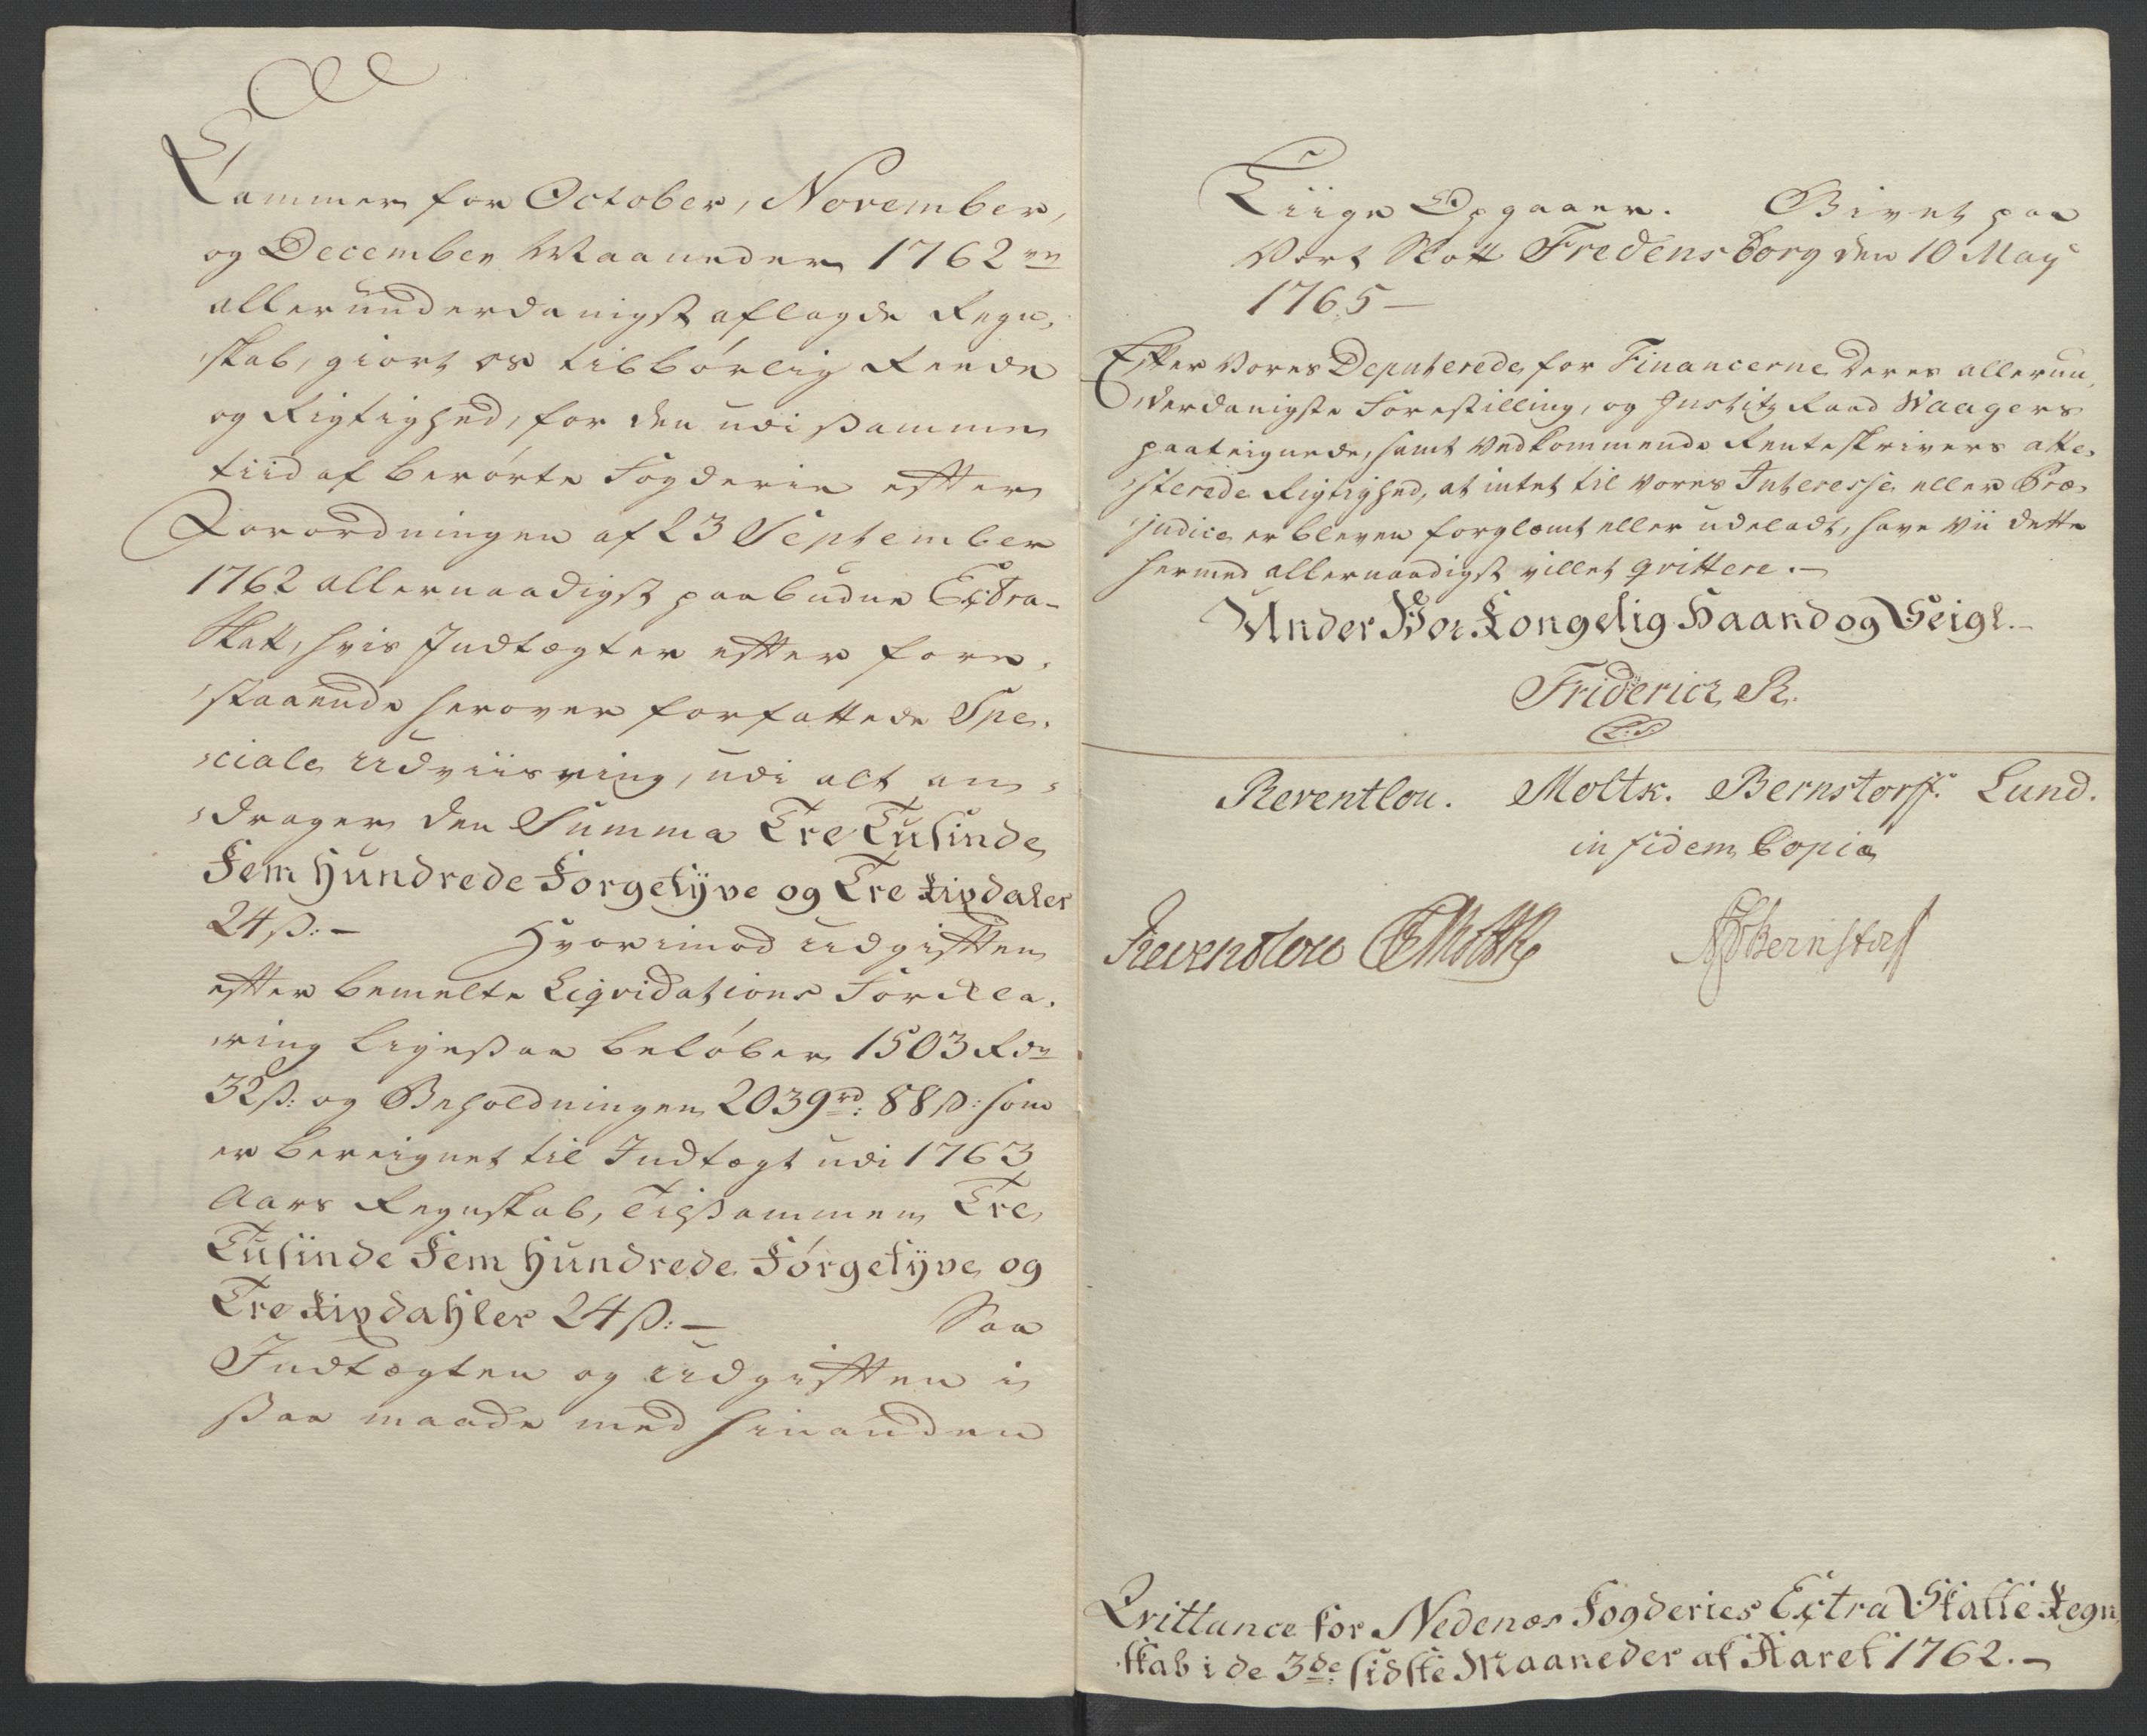 Cammer for October, November,
og December Maaneder 1762 
allerunderdanigst aflagde Regn,
skab, giort os tilbørlig Reede
og Rigtighed, for den udi ßamme
tiid af berørte Fogderie efter
Forordningen af 23 September
1762 allernaadigst paabudne Extra-
Skatt, hvis Indtægter efter foran,
staaende herover forfattede Spe,
ciale Udviisning, udi alt an,
drager den Summa Tre Tusinde
Fem Hundrede Forgetÿve og Tre Rixdaler
24 ß:- Hvorimod Udgiften
efter bemelte Liqvidations Forkla,
ring ligeßaa beløber 1503 Rdr
32 ß: og Beholdningen 2039 rd: 88 ß: som
er bereignet til Indtægt udi 1763
Aars Regnskab, Tilßammen Tre
Tusinde Fem Hundrede Fórgetÿve og
Tre Rixdahler 24 ß:- Saa
Indtægten og Udgiften i
ßaa maade med hinanden
Liige Opgaaer. Givet paa
Vort Slott Fredensborg den 10 May
1765 -
Efter Vores Deputerede for Financerne deres allerun,
derdanigste Forestilling, og Justitz Raad Waagers
paateignede, samt Vedkommende Renteskrivers atte,
sterede Rigtighed, at intet til Vores Interesse eller Præ,
judice er bleven forglemt eller udeladt, have Vii dette
hermed allernaadigst villet qvittere.-
Under Vor Kongelig Haand og Seigl.-
Friderich R.
L.S.
Reventlou. Moltk. Bernstorff. Lund.
in fidem Copiæ
Reventlou Moltke Bernstorff
Qvittance for Nedenæs Fogderies Extra Skatte Regn,
skab i de 3de sidste Maaneder af Aaret 1762.-